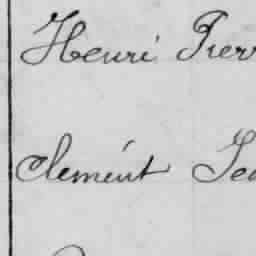 Henri Pierr
Clemént Jea